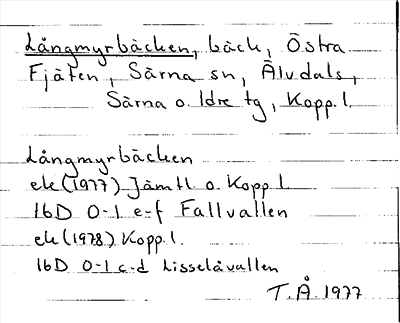 Långmyrbäcken, bäck, Östra
Fjäten, Särna sn, Älvdals,
Särna o. Idre tg, Kopp. l.
Långmyrbäcken
ek (1977) Jämtl. o. Kopp. l.
16D 0-1 e-f Fallvallen
ek (1978) Kopp. l.
16D 0-1 c-d Lisselåvallen
T.Å. 1977